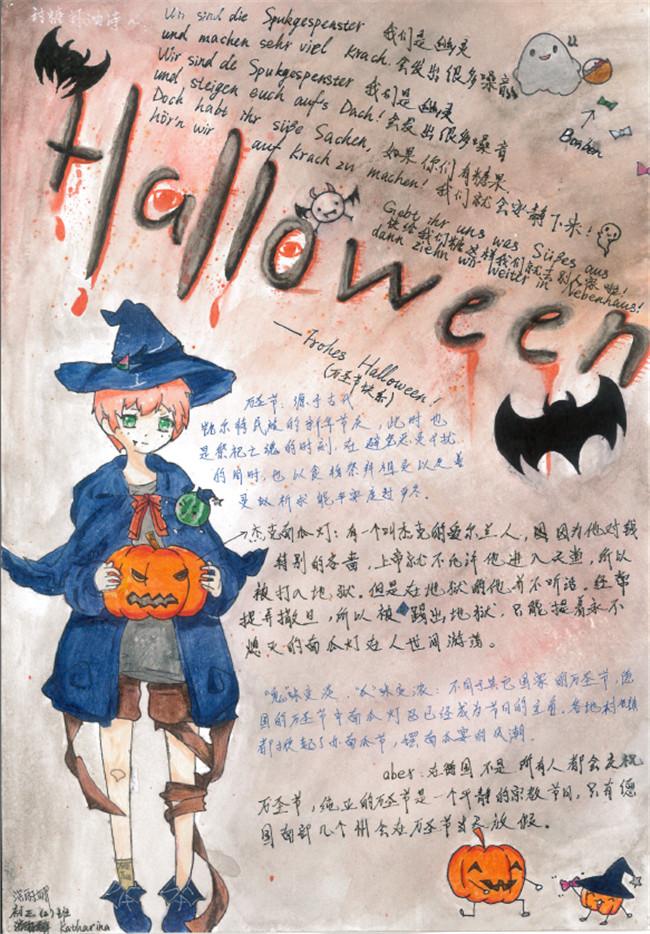 讨糖绿油诗
Wir sind die Spukgespenster 我们是幽灵
und machen sehr viel Krach. 会发出很多噪音
Wir sind de Spukgespenster 我们是幽灵
und steigen euch auf's Dach! 会发出很多噪音
Doch habt ihr süße Sachen, 如果你们有糖果.
hör'n wir auf Krach zu machen! 我们就会安静下来!
Gebt ihr uns wes Süßes aus
快给我们糖这样我们就去别人家啦!
dann ziehn wir weiter in Nebenhaus!
Bonbon
Halloween
—Frohes Halloween!
(万圣节快乐)
万圣节:源于古代
凯尔特民族的新年节庆,此时也
是祭祀亡魂的时刻,在避免恶灵干扰
的同时,也以食物祭拜祖灵以及善
灵以祈求能平安度过严冬。
杰克南瓜灯:有一个叫杰克的爱尔兰人,因为他对钱
特别的吝啬,上帝就不允许他进入天堂,所以
被打入地狱.但是在地狱的他并不听话.经常
捉弄撒旦,所以被踢出地狱,只能提着永不
熄灭的南瓜灯在人世间游荡。
"鬼"味变淡."瓜"味变浓:不同于其它国家的万圣节,德
国的万圣节中南瓜灯已经成为节日的主角.各地
都掀起了办南瓜节,摆南瓜宴的风潮.
aber:在德国不是所有人都会庆祝
万圣节,纯正的万圣节是一个平静的宗教节日,只有德
国南部几个州会在万圣节当天放假。
初三(2)班
Katharina